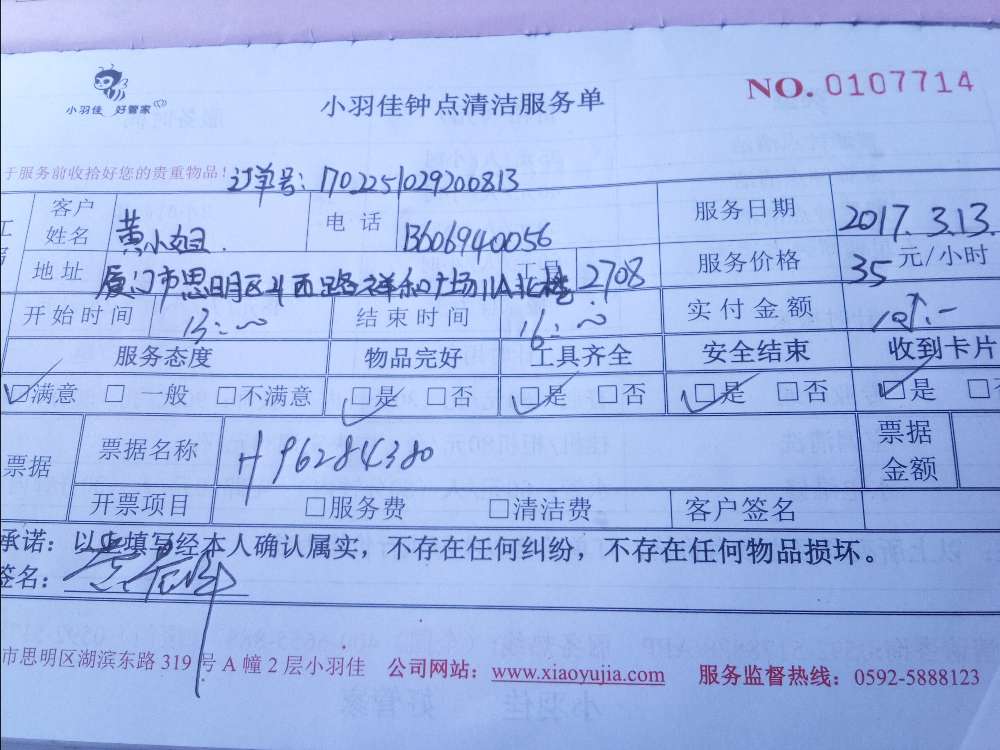 小羽佳 好管家
小羽佳钟点清洁服务单
NO. 0107714
于服务前收拾好您的贵重物品!
订单号: 1702251029200813
客户姓名 黄小姐 电话 13606940056 服务日期 2017.3.13.
地址 厦门市思明区斗西路祥和广场11A北楼2708 工号 服务价格 35 元/小时
开始时间 13:~ 结束时间 16:~ 实付金额 105.-
服务态度 物品完好 工具齐全 安全结束 收到卡片
☑满意 □一般 □不满意 ☑是 □否 ☑是 □否 ☑是 □否 ☑是
票据 票据名称 H96284380 票据金额
开票项目 □服务费 □清洁费 客户签名
承诺:以上填写经本人确认属实,不存在任何纠纷,不存在任何物品损坏。
签名:
市思明区湖滨东路 319 号 A 幢 2 层小羽佳 公司网站:www.xiaoyujia.com 服务监督热线:0592-5888123